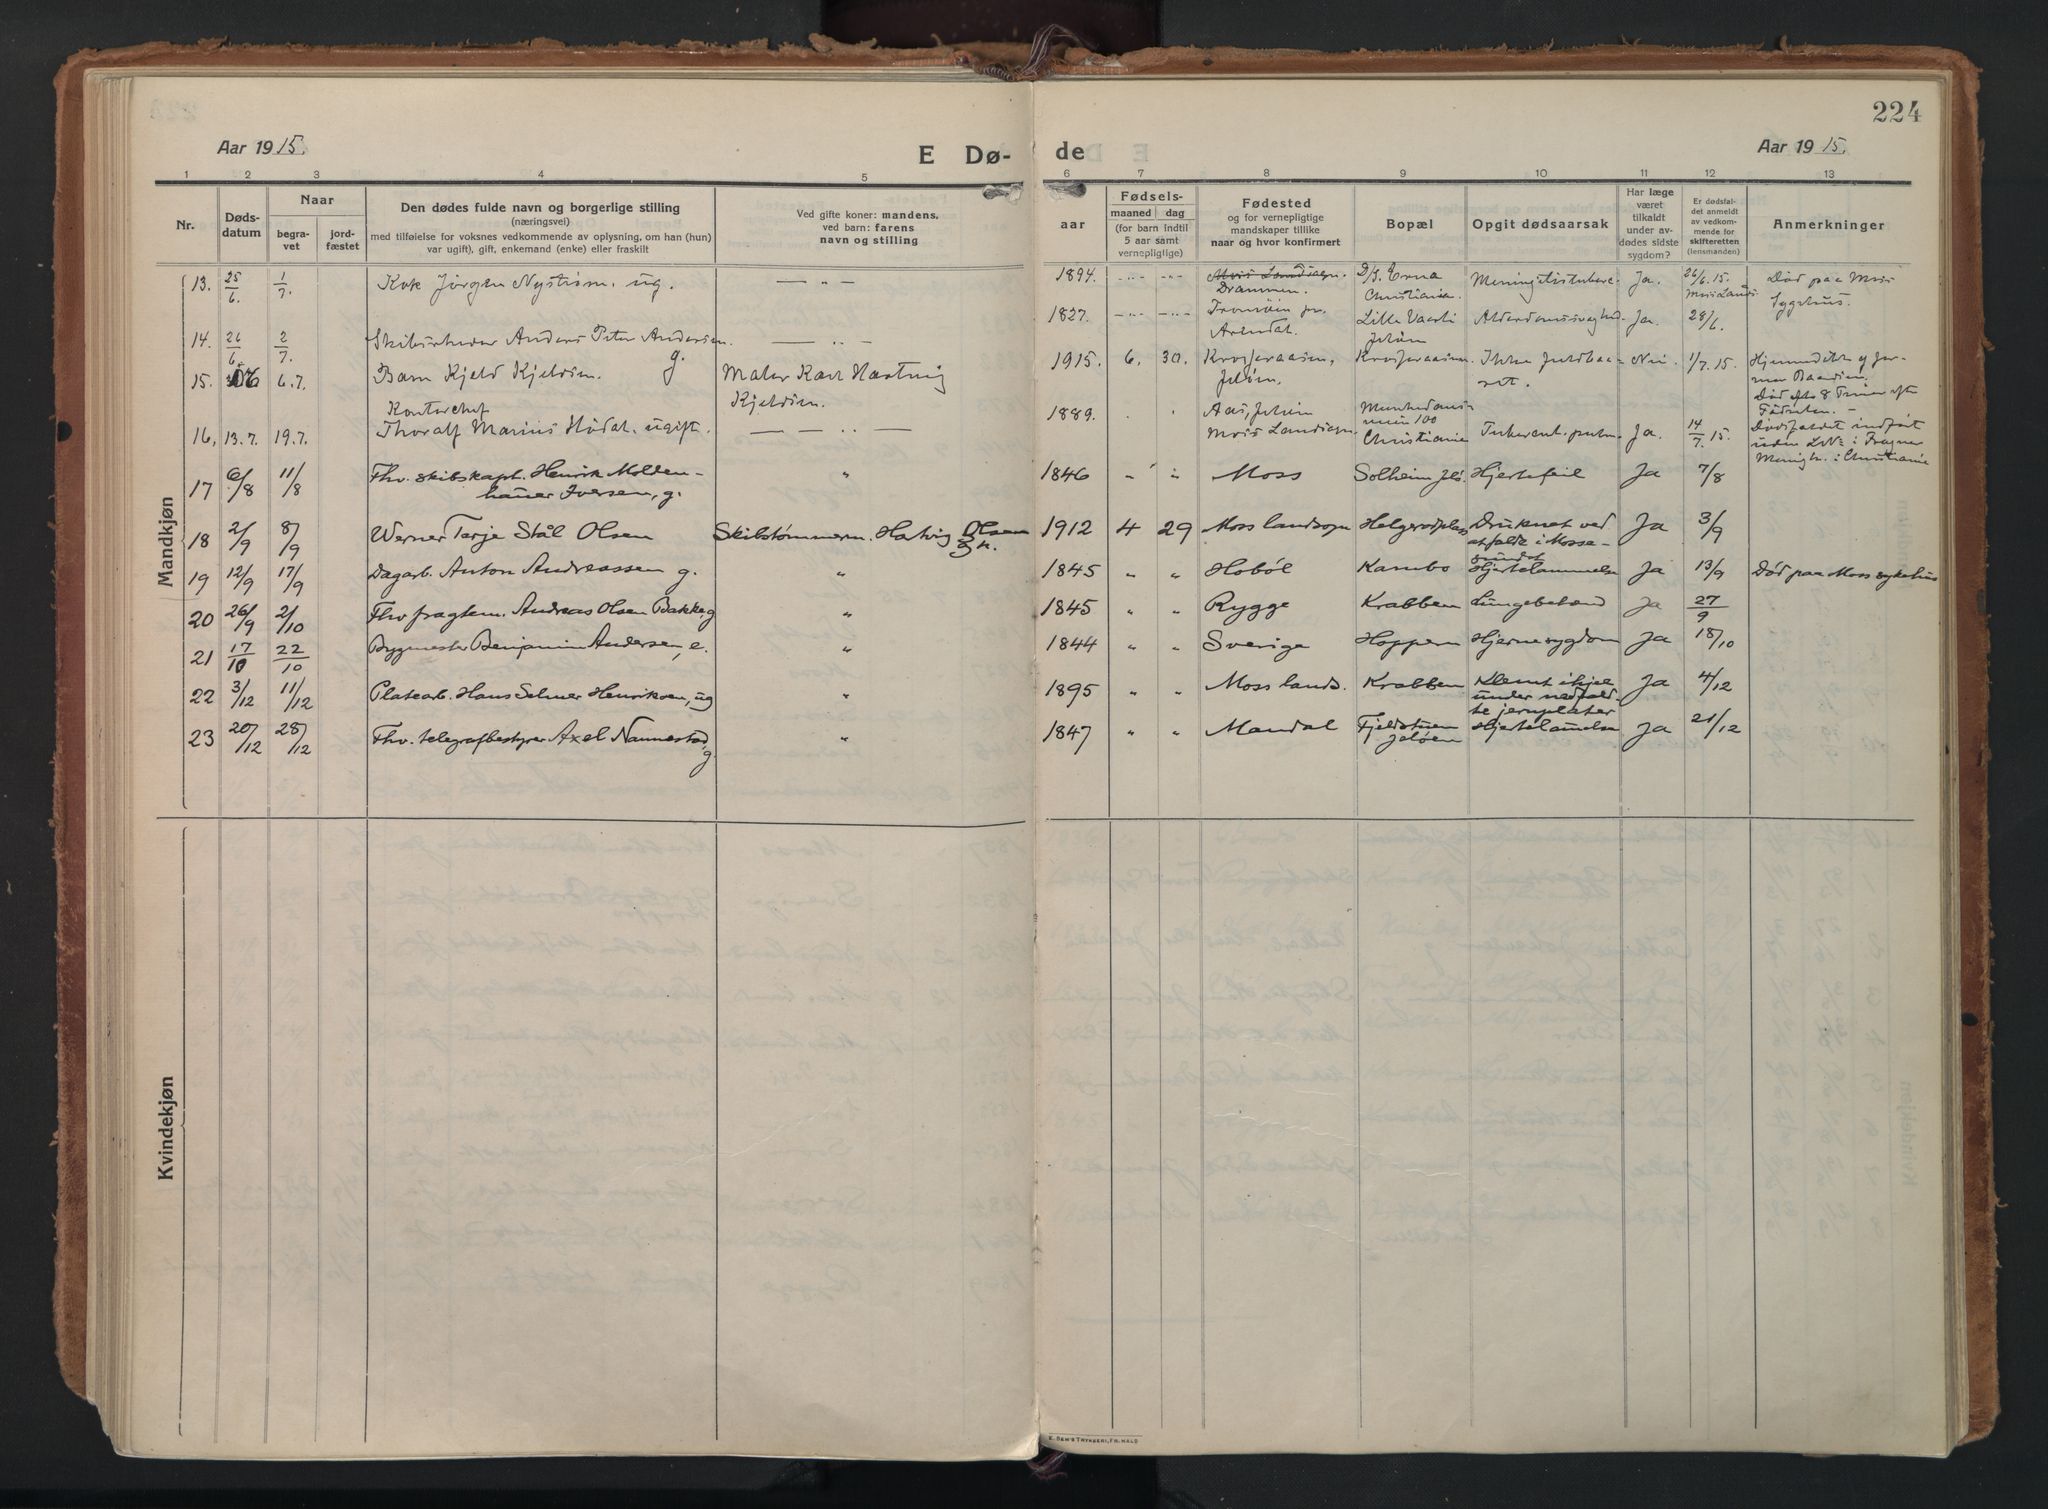 224
Aar 1915.
E Dø-
de
Aar 1915.
1 2 3 4 5 6 7 8 9 10 11 12 13
Nr.
Døds-
datum
Naar
begra-
vet
jord-
fæstet
Den dødes fulde navn og borgerlige stilling
(næringsvei)
med tilføielse for voksnes vedkommende av oplysning, om han (hun)
var ugift), gift, enkemand (enke) eller fraskilt
Ved gifte koner: mandens,
ved barn: farens
navn og stilling
aar
Fødsels-
maaned dag
(for barn indtil
5 aar samt
vernepligtige)
Fødested
og for vernepligtige
mandskaper tillike
naar og hvor konfirmert
Bopæl
Opgit dødsaarsak
Har læge
været
tilkaldt
under av-
dødes sidste
sygdom?
Er dødsfal-
det anmeldt
av vedkom-
mende for
skifteretten
(lensmanden)
Anmerkninger
Mandkjøn
13. 25/6. 1/7. Kok Jørgen Nystrøm. ug. — „ — 1894. Moss Landsogn. Drammen. D/S. Erna Christiania. Ja. 26/6. 15. Død paa Moss
Sygehus.
14. 26/6 2/7. Anders Peter Andersen. g. — „ — 1827. Tromøien pr. Arendal. Lille Vaarli Jeløen Alderdomssvaghed. Ja. 28/6.
15. 6.7. Barn Kjeld Kjeldsen. Maler Karl Hartvig
Kjeldsen. 1915. 6. 30. Krosseraasen, Jeløen. Krosseraasen. Ikke fuldbaa-
ret. Nei 1/7. 15. Hjemmedøbt
Død efter 8 Timer efter
Fødselen. —
16. 13.7. 19.7. Kontorchef
Thoralf Marius Hødal. ugift. — „ — 1889. Aas, Jeløen
Moss Landsogn. Munkedams-
veien 100
Christiania Tuberkul. pulm. Ja. 14/7. 15. Dødsfaldet indført
uden LNr i Frogner
Menigh. i Christiania
17 6/8 11/8 Fhv. skibskapt. Henrik Molden-
hauer Iversen, g. „ 1846 „ „ Moss Solheim Jelø. Hjertefeil Ja 7/8
18 2/9 8/9 Werner Terje Stål Olsen Skibstømmerm. Hatvig Olsen 1912 4 29 Moss landsogn Helgerødplass Druknet ved
at falde i Mosse-
sundet Ja 3/9
19 12/9 17/9 Dagarb. Anton Andreassen g. „ 1845 „ „ Hobøl Kambo Hjertelammelse Ja 13/9 Død paa Moss sykehus
20 26/9 2/10 Fhv fragtem. Andreas Olsen Bakke, g „ 1845 „ „ Rygge Krabben Lungebetænd Ja 27/9
21 17/10 22/10 Bygmester Benjamin Andersen, e. „ 1844 „ „ Sverige Hoppern Hjernesygdom Ja 18/10
22 3/12 11/12 Platearb. Hans Selmer Henriksen, ug „ 1895 „ „ Moss lands. Krabben Klemt ihjel
under nedfald-
te jernplater Ja 4/12
23 20/12 28/12 Fhv. telegrafbestyrer Axel Nannestad, g. „ 1847 „ „ Mandal Fjeldstuen
Jeløen Hjertelamelse Ja 21/12
Kvindekjøn
E. SEM'S TRYKKERI, FR.HALD